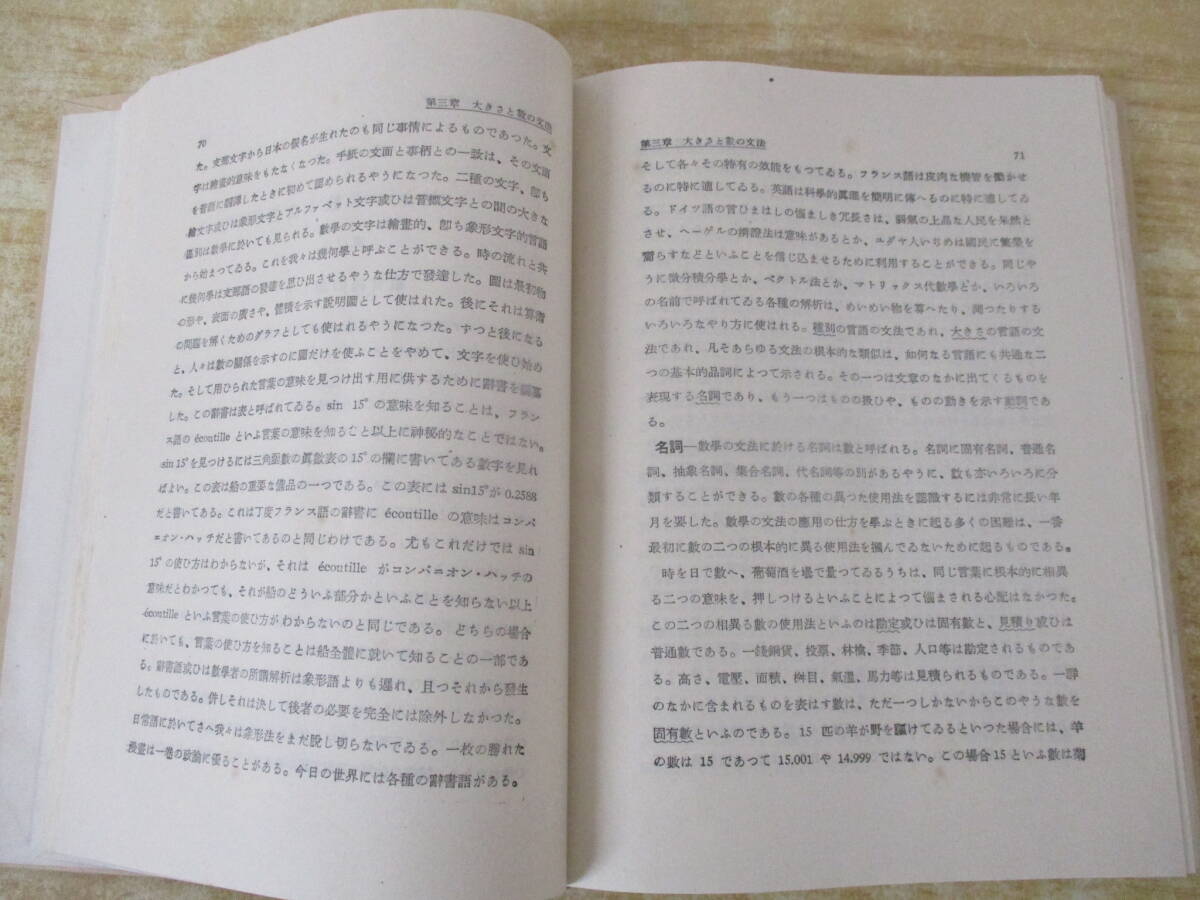 第三章 大きさと數の文法
70
た。支那文字から日本の假名が生れたのも同じ事情によるものであつた。文
字は繪畫的意味をもたなくなつた。手紙の文面と事柄との一致は、その文面
を言語に飜譯したときに初めて認められるやうになつた。二種の文字、卽ち
繪文字或ひは象形文字とアルファベット文字或ひは音標文字との間の大きな
區別は數學に於いても見られる。數學の文字は繪畫的、卽ち象形文字的言語
から始まつてゐる。これを我々は幾何學と呼ぶことができる。時の流れと共
に幾何學は支那語の發達を思ひ出させるやうな仕方で發達した。圖は最初物
の形や、表面の廣さや、體積を示す説明圖として使はれた。後にそれは算術
の問題を解くためのグラフとしても使はれるやうになつた。ずつと後になる
と、人々は數の關係を示すのに圖だけを使ふことをやめて、文字を使ひ始め
た。そして用ひられた言葉の意味を見つけ出す用に供するために辭書を編纂
した。この辭書は表と呼ばれてゐる。sin 15°の意味を知ることは、フラン
ス語の écoutille といふ言葉の意味を知ること以上に神秘的なことではない。
sin 15°を見つけるには三角函數の眞數表の 15°の欄に書いてある數字を見れ
ばよい。この表は船の重要な備品の一つである。この表には sin15°が 0.2588
だと書いてある。これは丁度フランス語の辭書に écoutille の意味はコンパ
ニオン・ハッチだと書いてあるのと同じわけである。尤もこれだけでは sin
15°の使ひ方はわからないが、それは écoutille がコンパニオン・ハッチの
意味だとわかつても、それが船のどういふ部分かといふことを知らない以上
écoutille といふ言葉の使ひ方がわからないのと同じである。どちらの場合
に於いても、言葉の使ひ方を知ることは船全體に就いて知ることの一部であ
る。辭書語或ひは數學者の所謂解析は象形語よりも遅れ、且つそれから發生
したものである。併しそれは決して後者の必要を完全には除外しなかつた。
日常語に於いてさへ我々は象形法をまだ脱し切らないでゐる。一枚の勝れた
漫畫は一卷の政論に優ることがある。今日の世界には各種の辭書語がある。
第三章 大きさと數の文法
71
そして各々その特有の效能をもつてゐる。フランス語は皮肉な機智を働かせ
るのに特に適してゐる。英語は科學的眞理を簡明に傳へるのに特に適してゐ
る。ドイツ語の言ひまはしの惱ましき冗長さは、弱氣の上品な人民を呆然と
させ、ヘーゲルの辨證法は意味があるとか、ユダヤ人いぢめは國民に繁榮を
齎らすなどといふことを信じ込ませるために利用することができる。同じや
うに微分積分學とか、ベクトル法とか、マトリックス代數學とか、いろいろ
の名前で呼ばれてゐる各種の解析は、めいめい物を算へたり、測つたりする
いろいろなやり方に使はれる。種別の言語の文法であれ、大きさの言語の文
法であれ、凡そあらゆる文法の根本的な類似は、如何なる言語にも共通な二
つの基本的品詞によつて示される。その一つは文章のなかに出てくるものを
表現する名詞であり、もう一つはものの扱ひや、ものの動きを示す動詞であ
る。
名詞—數學の文法に於ける名詞は數と呼ばれる。名詞に固有名詞、普通名
詞、抽象名詞、集合名詞、代名詞等の別があるやうに、數も亦いろいろに分
類することができる。數の各種の異つた使用法を認識するには非常に長い年
月を要した。數學の文法の應用の仕方を學ぶときに起る多くの困難は、一番
最初に數の二つの根本的に異る使用法を摑んでゐないために起るものである。
時を日で數へ、葡萄酒を壜で量つてゐるうちは、同じ言葉に根本的に相異
る二つの意味を、押しつけるといふことによつて惱まされる心配はなかつた。
この二つの相異る數の使用法といふのは勘定或ひは固有數と、見積り或ひは
普通數である。一錢銅貨、投票、林檎、季節、人口等は勘定されるものであ
る。高さ、電壓、面積、桝目、氣溫、馬力等は見積られるものである。一群
のなかに含まれるものを表はす數は、ただ一つしかないからこのやうな數を
固有數といふのである。15 匹の羊が野を驅けてゐるといつた場合には、羊
の數は 15 であつて 15.001 や 14.999 ではない。この場合 15 といふ數は菊